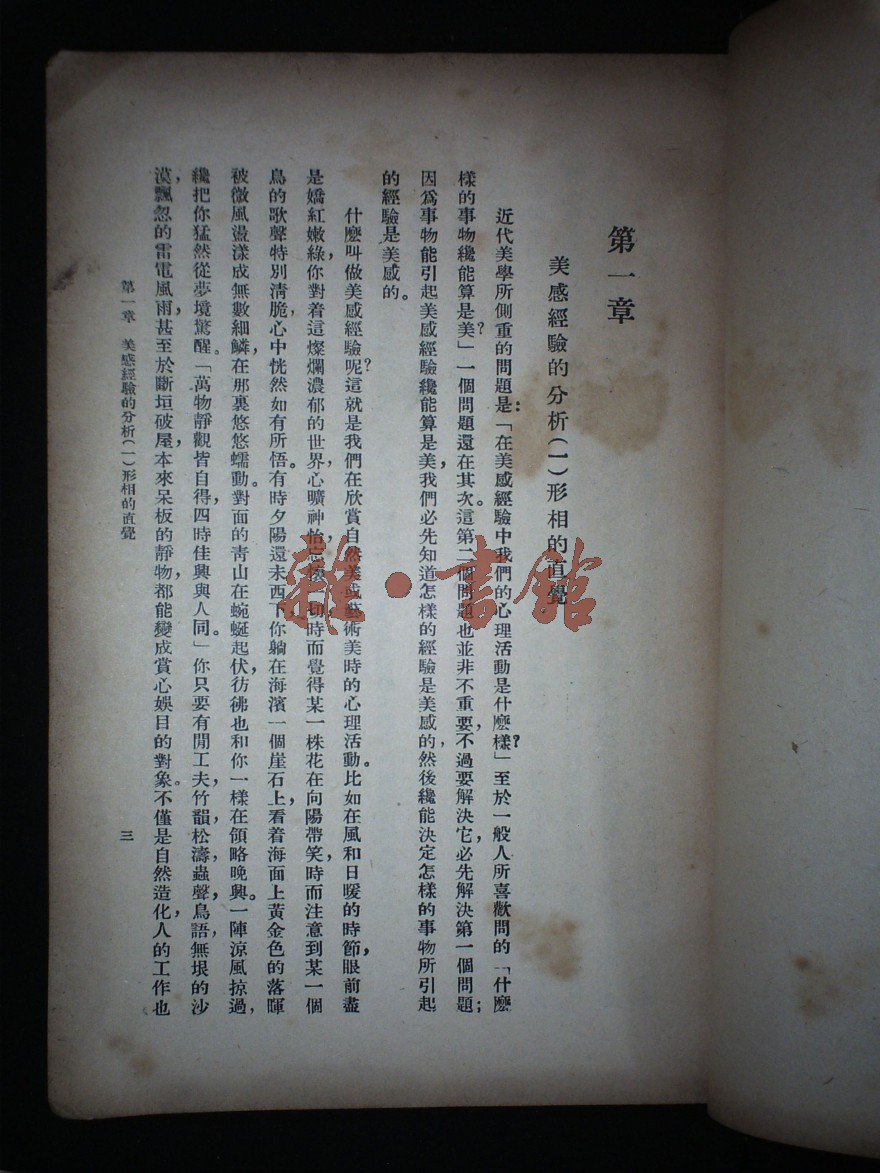 第一章
美感經驗的分析(一)形相的直覺
近代美學所側重的問題是:「在美感經驗中我們的心理活動是什麽樣?」至於一般人所喜歡問的「什麽
樣的事物纔能算是美?」一個問題還在其次。這第二個問題也並非不重要,不過要解決它,必先解決第一個問題;
因爲事物能引起美感經驗纔能算是美,我們必先知道怎樣的經驗是美感的,然後纔能決定怎樣的事物所引起
的經驗是美感的。
什麽叫做美感經驗呢?這就是我們在欣賞自然美或藝術美時的心理活動。比如在風和日暖的時節,眼前盡
是嬌紅嫩綠,你對着這燦爛濃郁的世界,心曠神怡,忘懷一切,時而覺得某一株花在向陽帶笑,時而注意到某一個
鳥的歌聲特別清脆,心中恍然如有所悟。有時夕陽還未西下,你躺在海濱一個崖石上,看着海面上黃金色的落暉
被微風盪漾成無數細鱗,在那裏悠悠蠕動。對面的青山在蜿蜒起伏,彷彿也和你一樣在領略晚興。一陣涼風掠過,
纔把你猛然從夢境驚醒。「萬物靜觀皆自得,四時佳興與人同。」你只要有閒工夫,竹韻,松濤,蟲聲,鳥語,無垠的沙
漠,飄忽的雷電風雨,甚至於斷垣破屋,本來呆板的靜物,都能變成賞心娛目的對象。不僅是自然造化,人的工作也
第一章 美感經驗的分析(一)形相的直覺
三
雜·書館